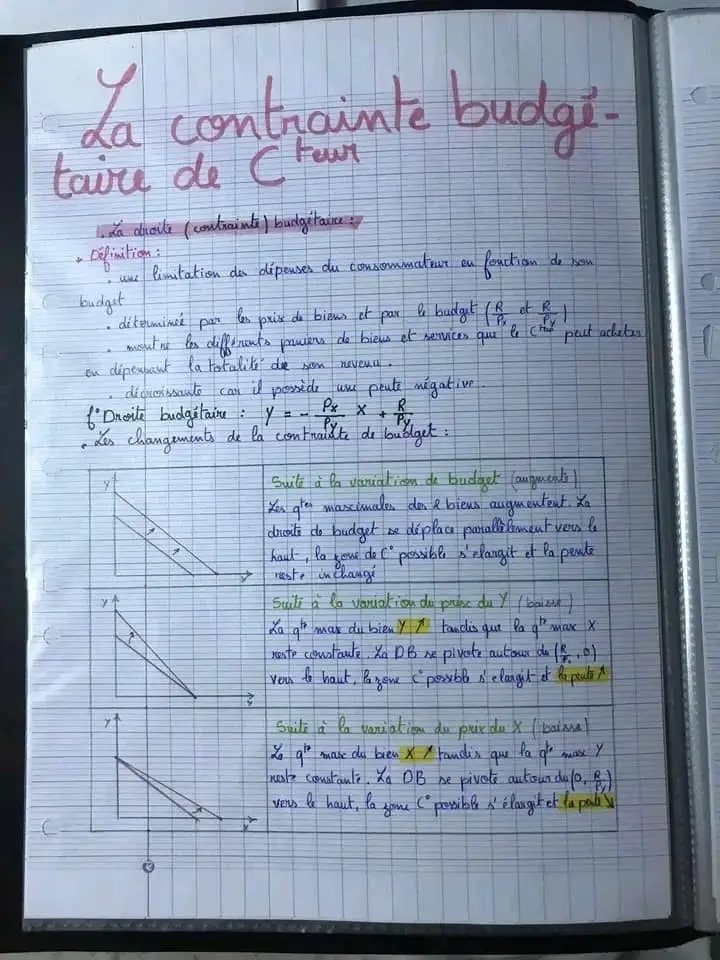 La contrainte budgé-
taire de Cteur
. La droite (contrainte) budgétaire :
. Définition :
. une limitation des dépenses du consommateur en fonction de son
budget
. déterminée par les prix de biens et par le budget (R/Px et R/Py)
. montre les différents paniers de biens et services que le peut acheter
en dépensant la totalité de son revenu.
. décroissante car il possède une pente négative.
f° Droite budgétaire : Y = - Px/Py X + R/Py
. Les changements de la contrainte de budget :
y
x
Suite à la variation de budget (augmente)
Les qtes maximales des 2 biens augmentent. La
droite de budget se déplace parallèlement vers le
haut, la zone de C° possible s'élargit et la pente
reste inchangé
y
x
Suite à la variation du prix du Y (baisse)
La qte max du bien Y ↗ tandis que la qte max X
reste constante. La DB se pivote autour du (R/Px, 0)
vers le haut, la zone C° possible s'élargit et la pente ↗
y
x
Suite à la variation du prix du X (baisse)
La qte max du bien X ↗ tandis que la qte max Y
reste constante. La DB se pivote autour du (0, R/Py)
vers le haut, la zone C° possible s'élargit et la pente ↘